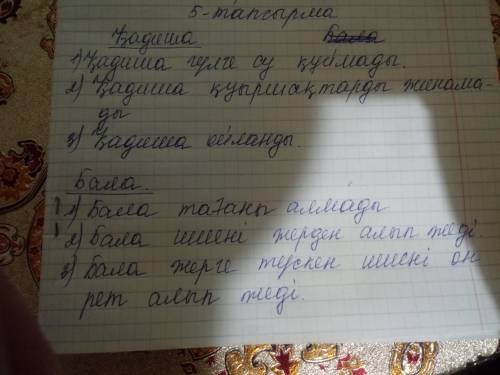 5-тапсырма
Қадиша Бала
1) Қадиша гүлге су құймады.
2) Қадиша қуыршақтарды жинама-
ды
3) Қадиша ойланды.
Бала.
1) Бала тағаны алмады
2) Бала шиені жерден алып жеді
3) Бала жерге түскен шиені он
рет алып жеді.